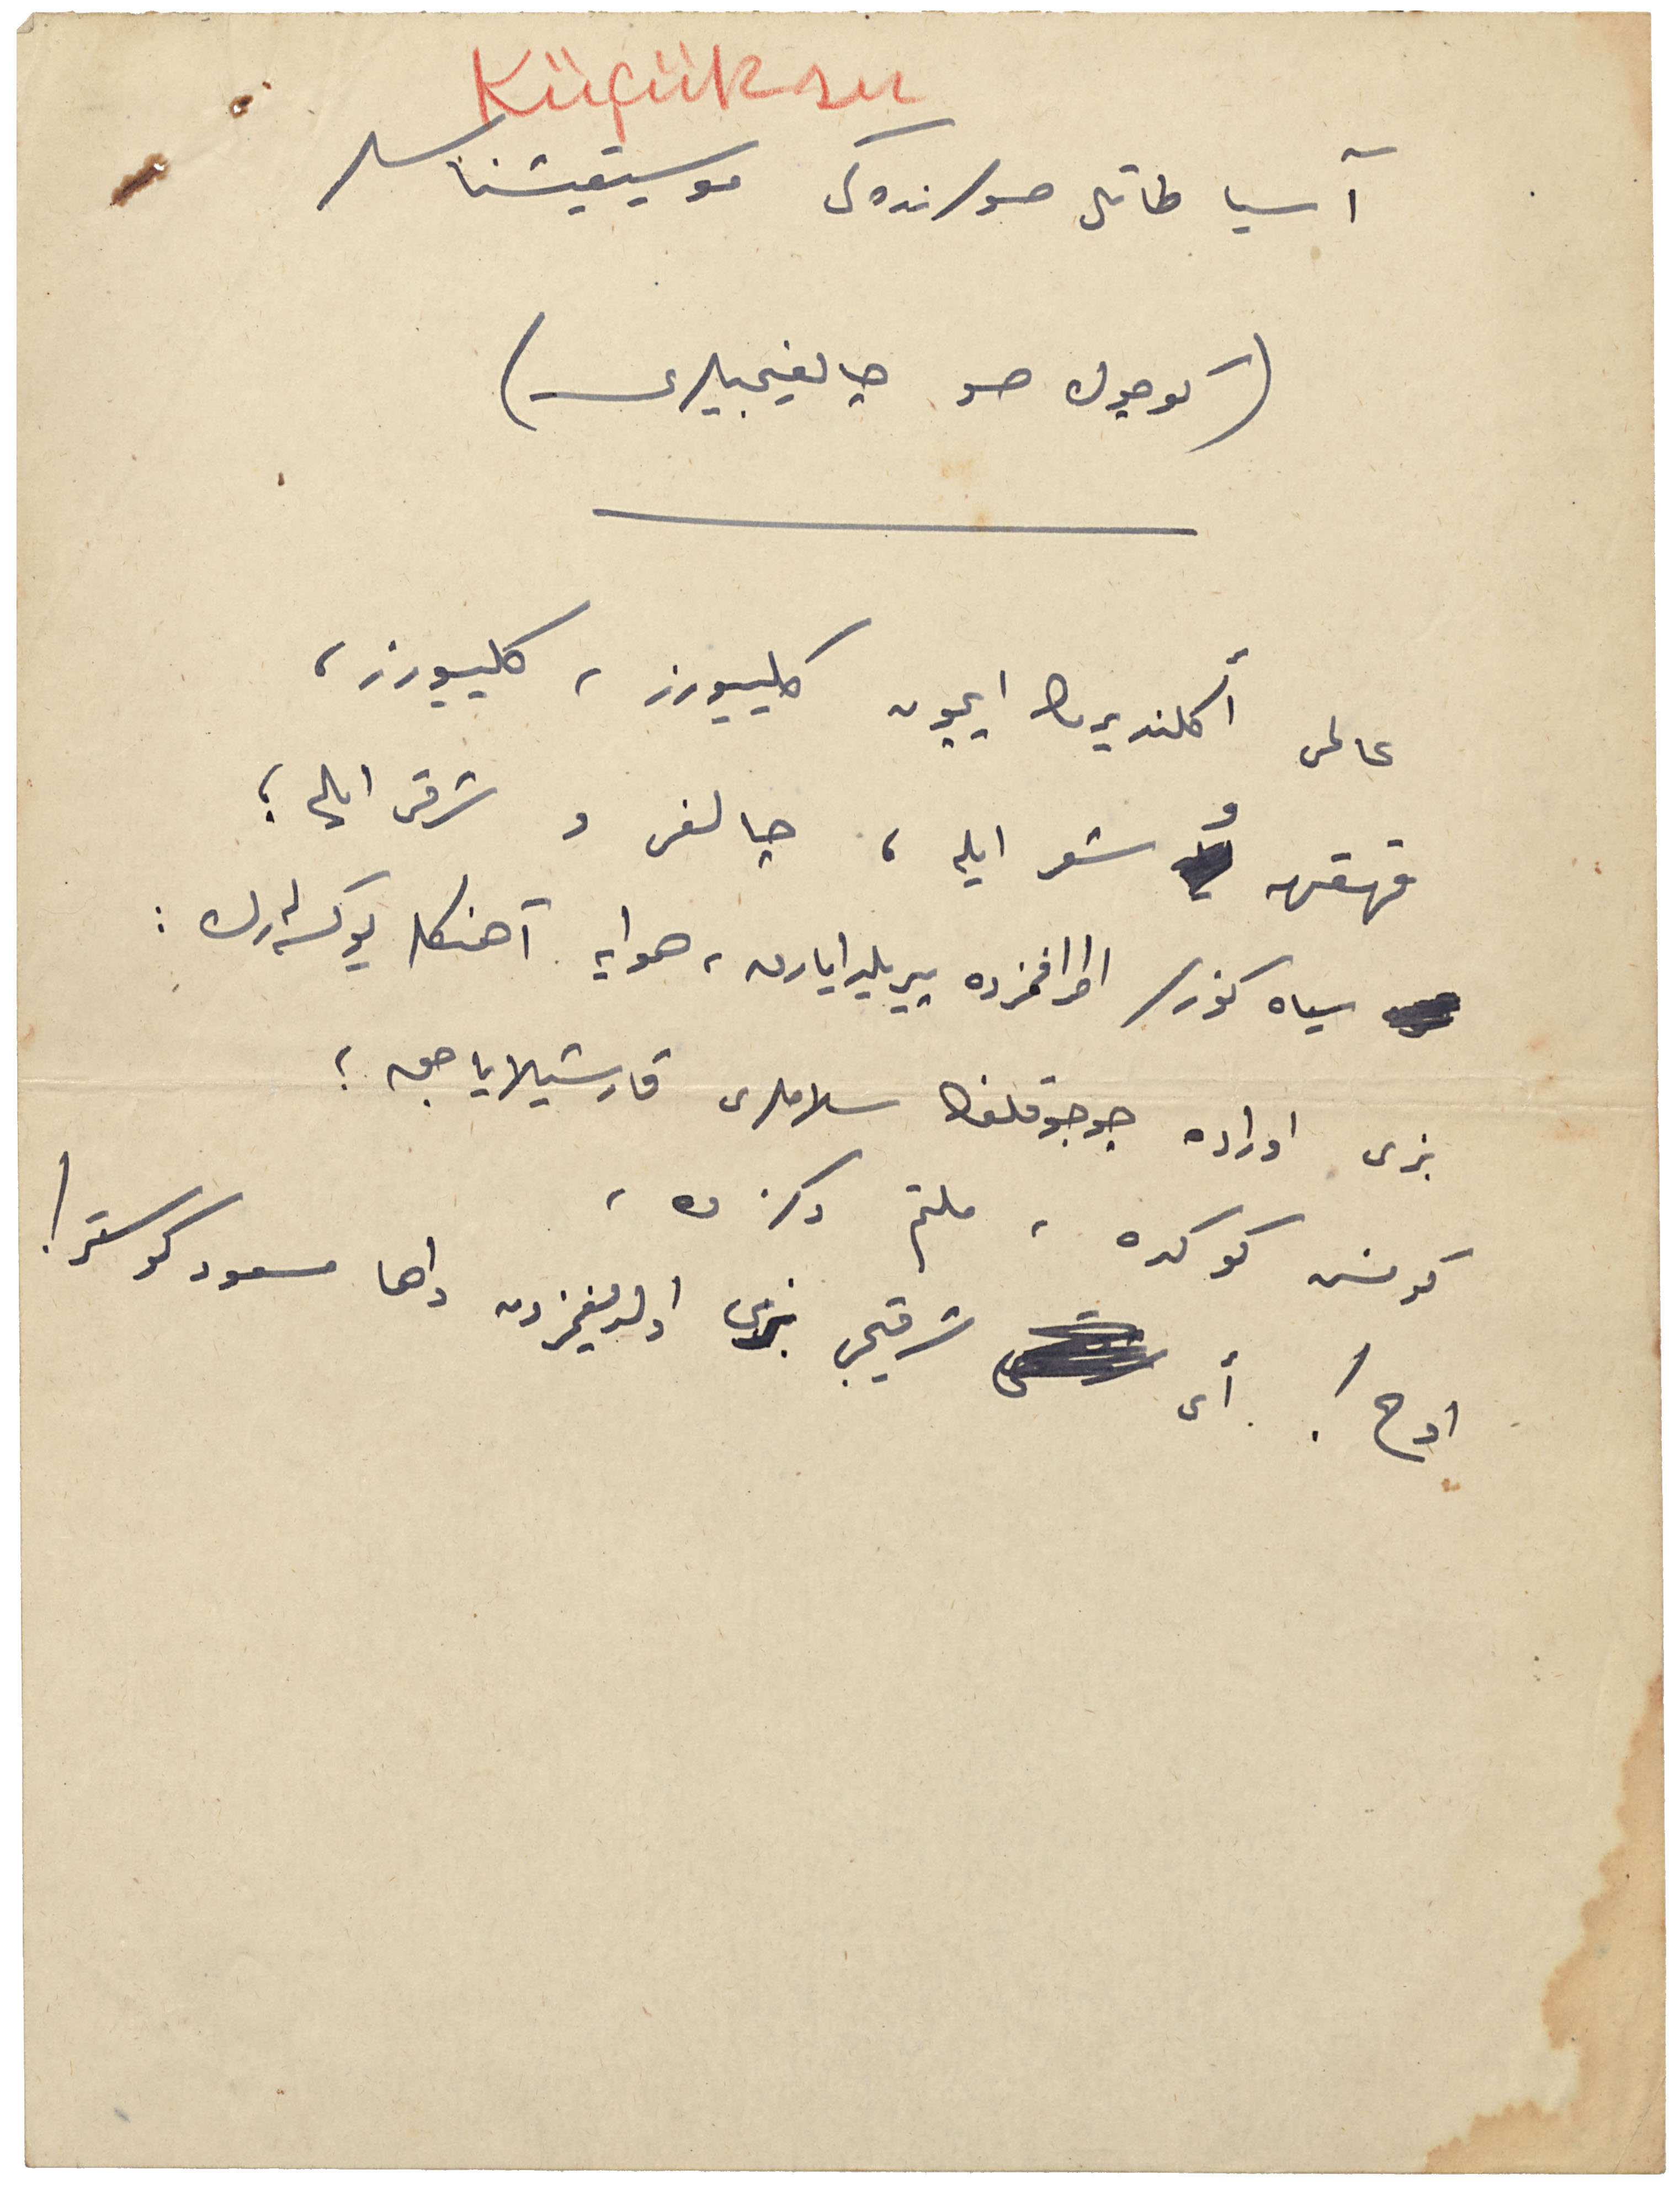 Küçüksu
آسیا طاتلی صولرنده‌کی موسیقیشناسلر
(کوچوك صو چالغیجیلری)
عالمی أکلندیرمك ایچون کلییورز ، کلییورز ،
قهقهه و شعر ایله ، چالغی و شرقی ایله ؛
سیاه کوزلر اطرافمزده پیریلدایارق ، هوایه آهنکلر یوکسله‌رك :
بزی اوراده چوجوقلغك سلاملری قارشیلایاجق ؛
کونش کوکده ، ملتم دکزده ،
اوح ! أی شرقیجی بزی اولدیغمزدن داها مسعود کوستر !